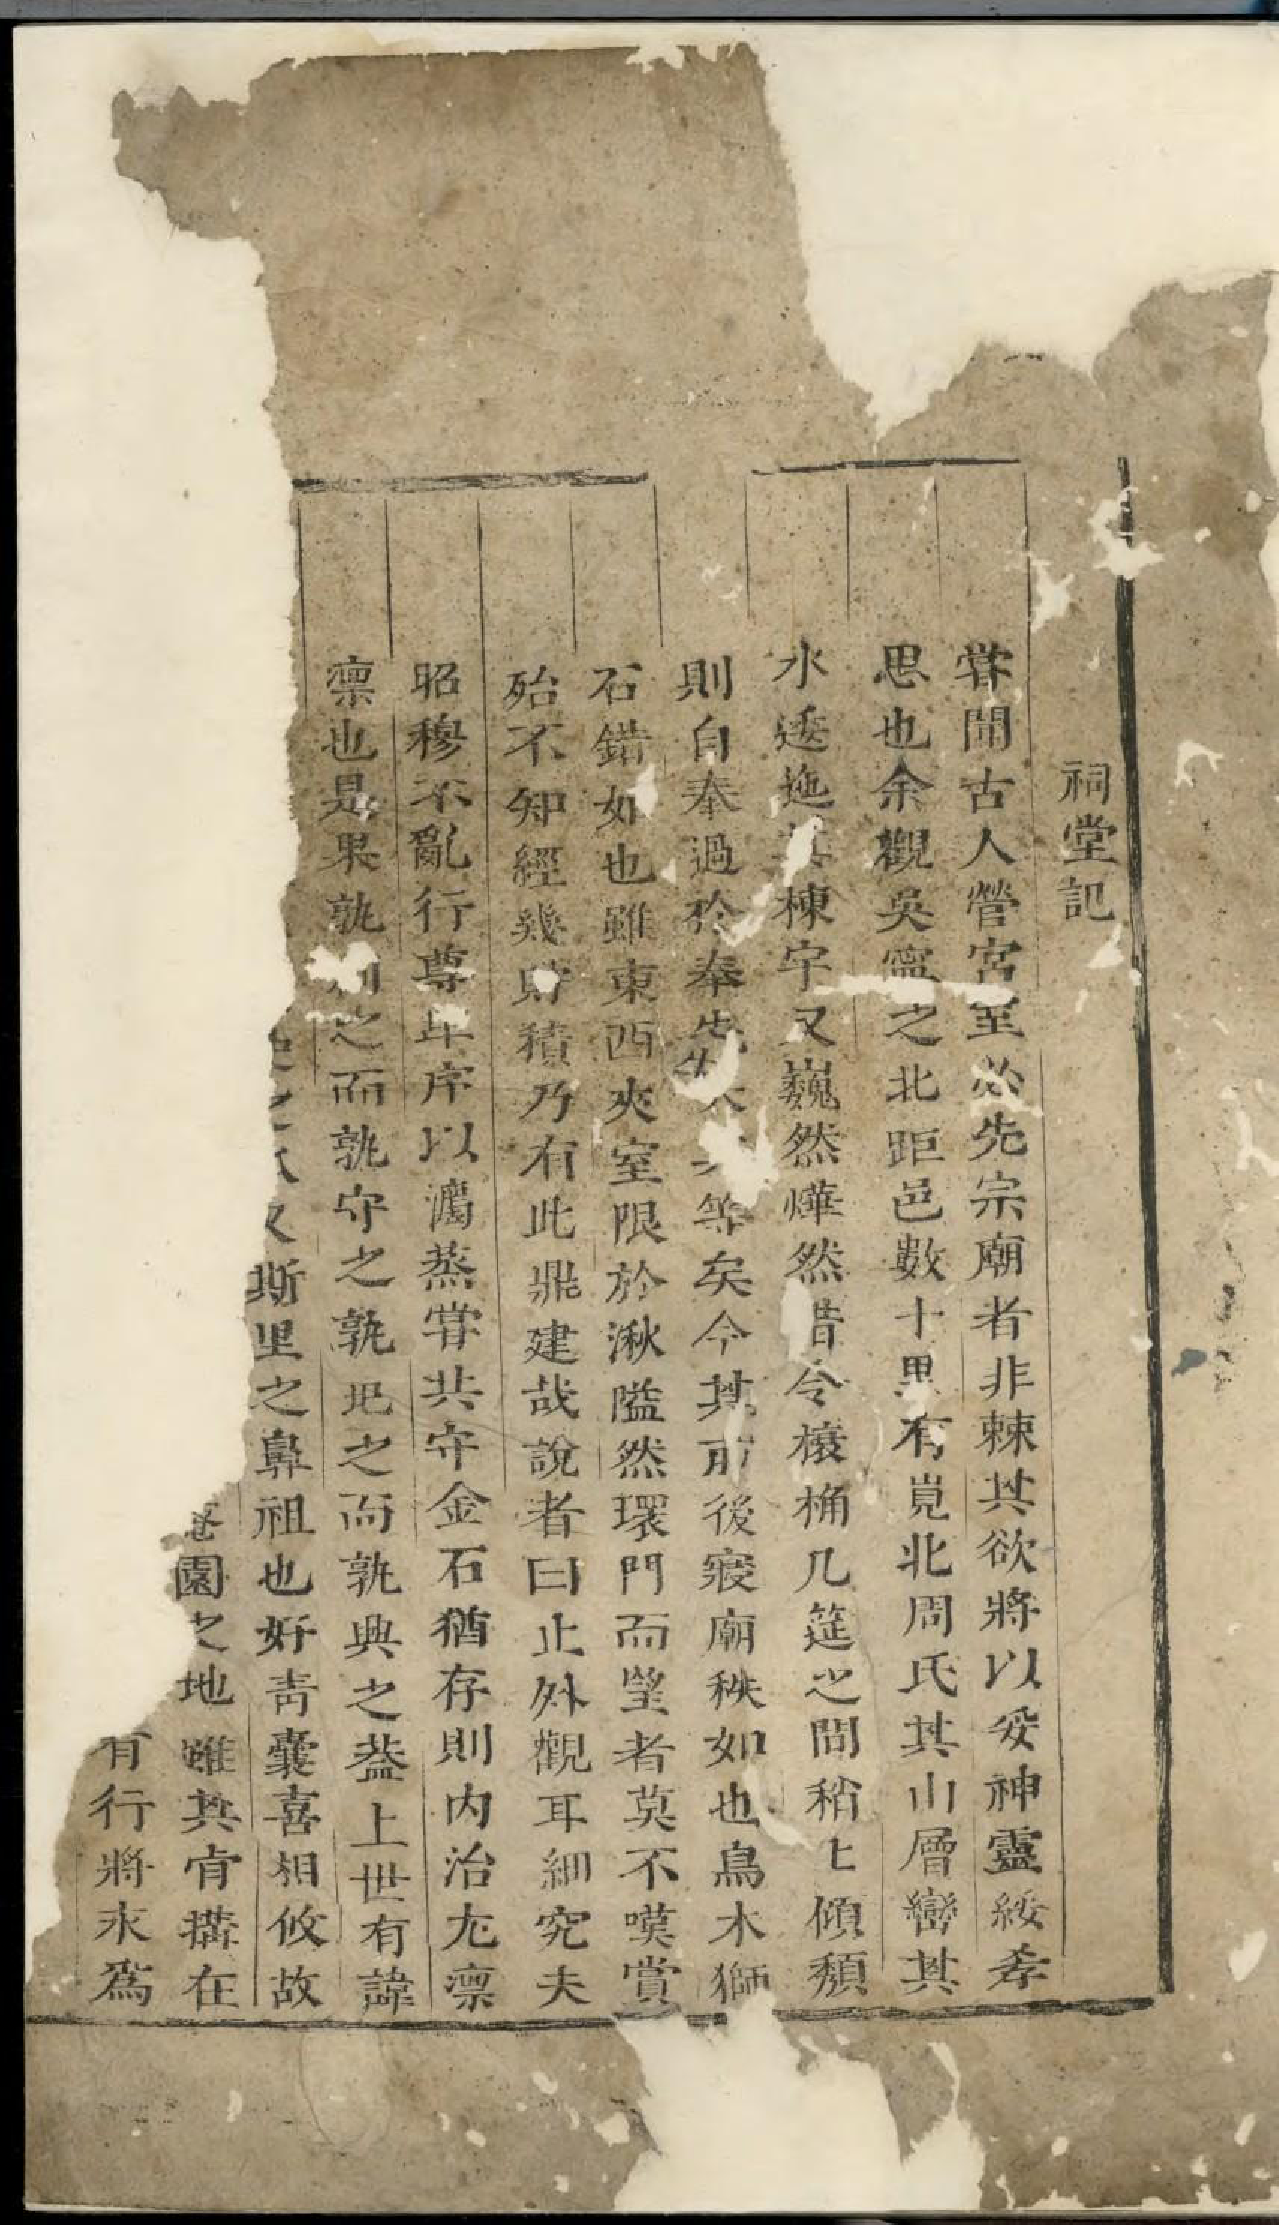 祠堂記
甞聞古人營宮室必先宗廟者非棘其欲將以妥神靈綏孝
思也余觀吳寧之北距邑數十里有峴北周氏其山層巒其
水逶迤其棟宇又巍然燁然借令榱桷几筵之間稍匕傾頹
則自奉過於奉先等矣今其前後寢廟秩如也鳥木獅
石錯如也雖東西夾室限於湫隘然環門而望者莫不嘆賞
殆不知經幾時積乃有此鼎建哉說者曰止外觀耳細究夫
昭穆不亂行尊年序以濿蒸甞共守金石猶存則内治尢凛
凛也是果孰之而孰守之孰圯之而孰興之葢上世有諱
斯里之鼻祖也好靑囊喜相攸故
園之地雖其肯搆在
有行將永爲